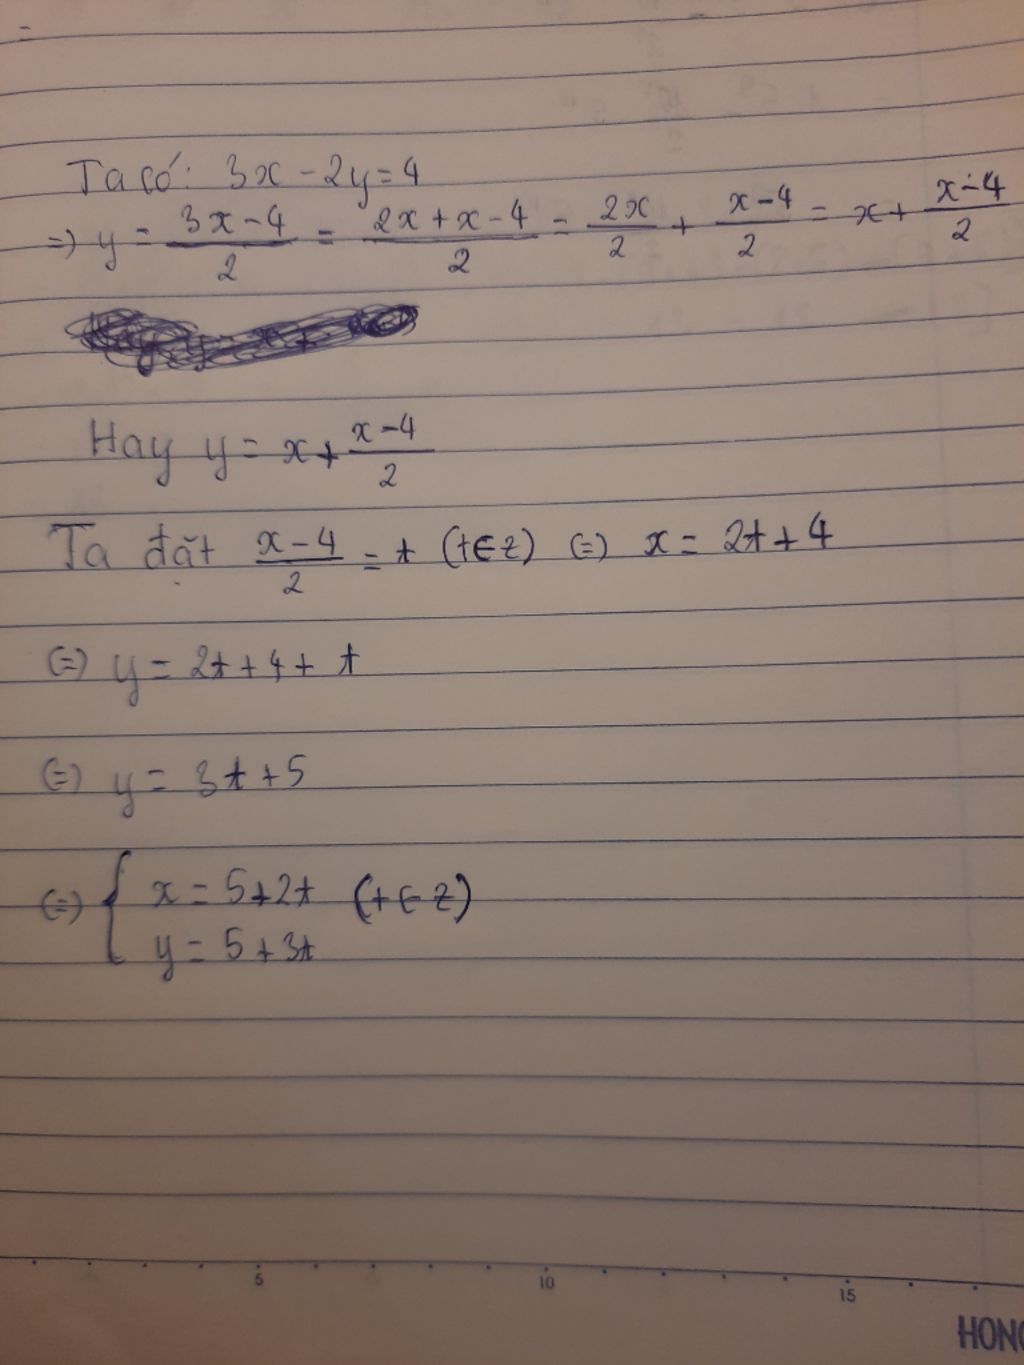 Ta có: 3x - 2y = 4
=> y = \frac{3x-4}{2} = \frac{2x+x-4}{2} = \frac{2x}{2} + \frac{x-4}{2} = x + \frac{x-4}{2}
Hay y = x + \frac{x-4}{2}
Ta đặt \frac{x-4}{2} = t (t∈z) (=) x = 2t + 4
(=) y = 2t + 4 + t
(=) y = 3t + 5
(=) { x = 5 + 2t (t∈z)
y = 5 + 3t
5 10 15
HONG